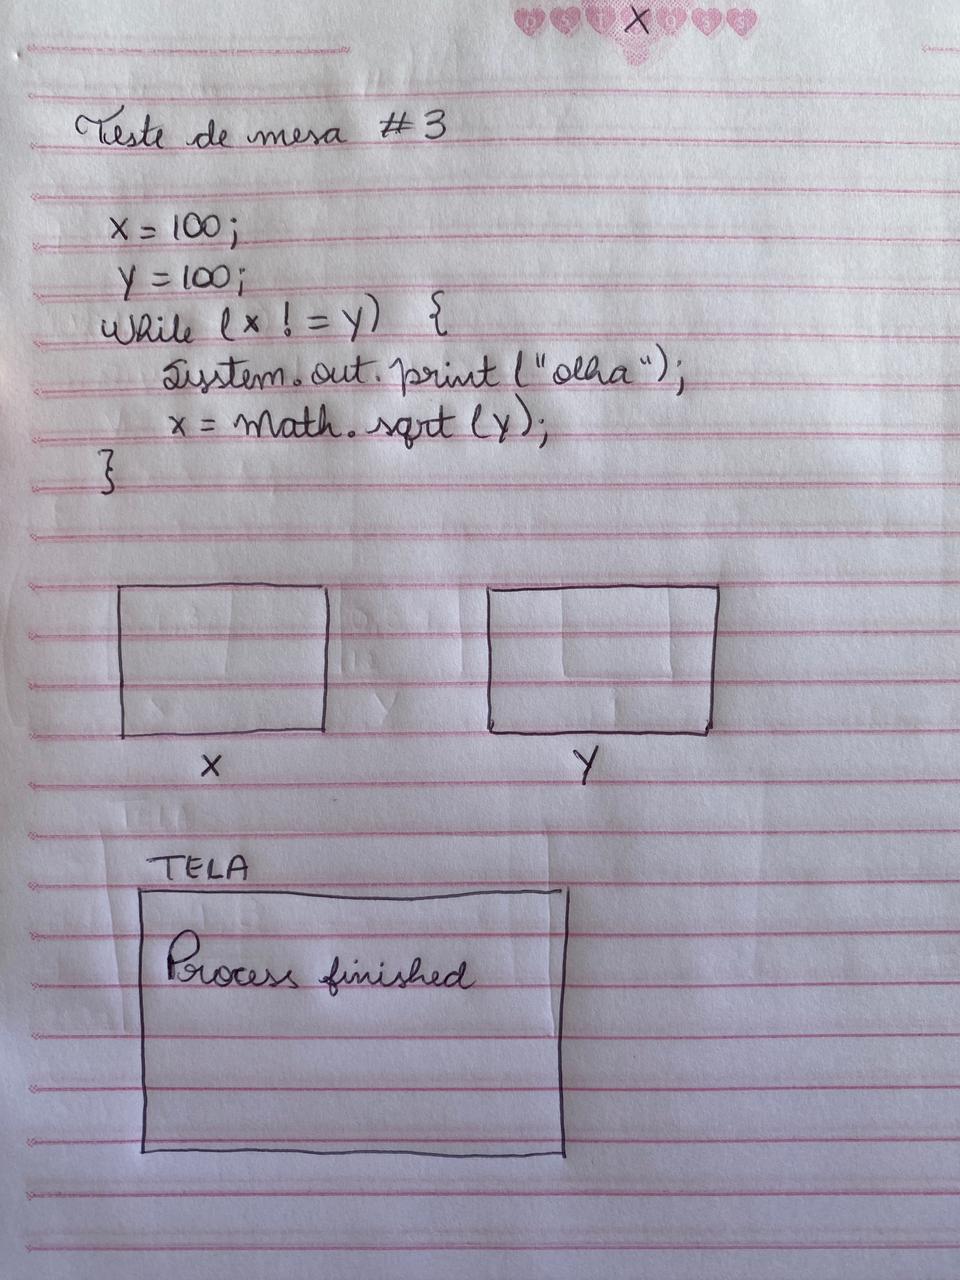 X
Teste de mesa #3
x = 100;
y = 100;
while (x != y) {
System.out.print ("olha");
x = Math.sqrt (y);
}
X
Y
TELA
Process finished